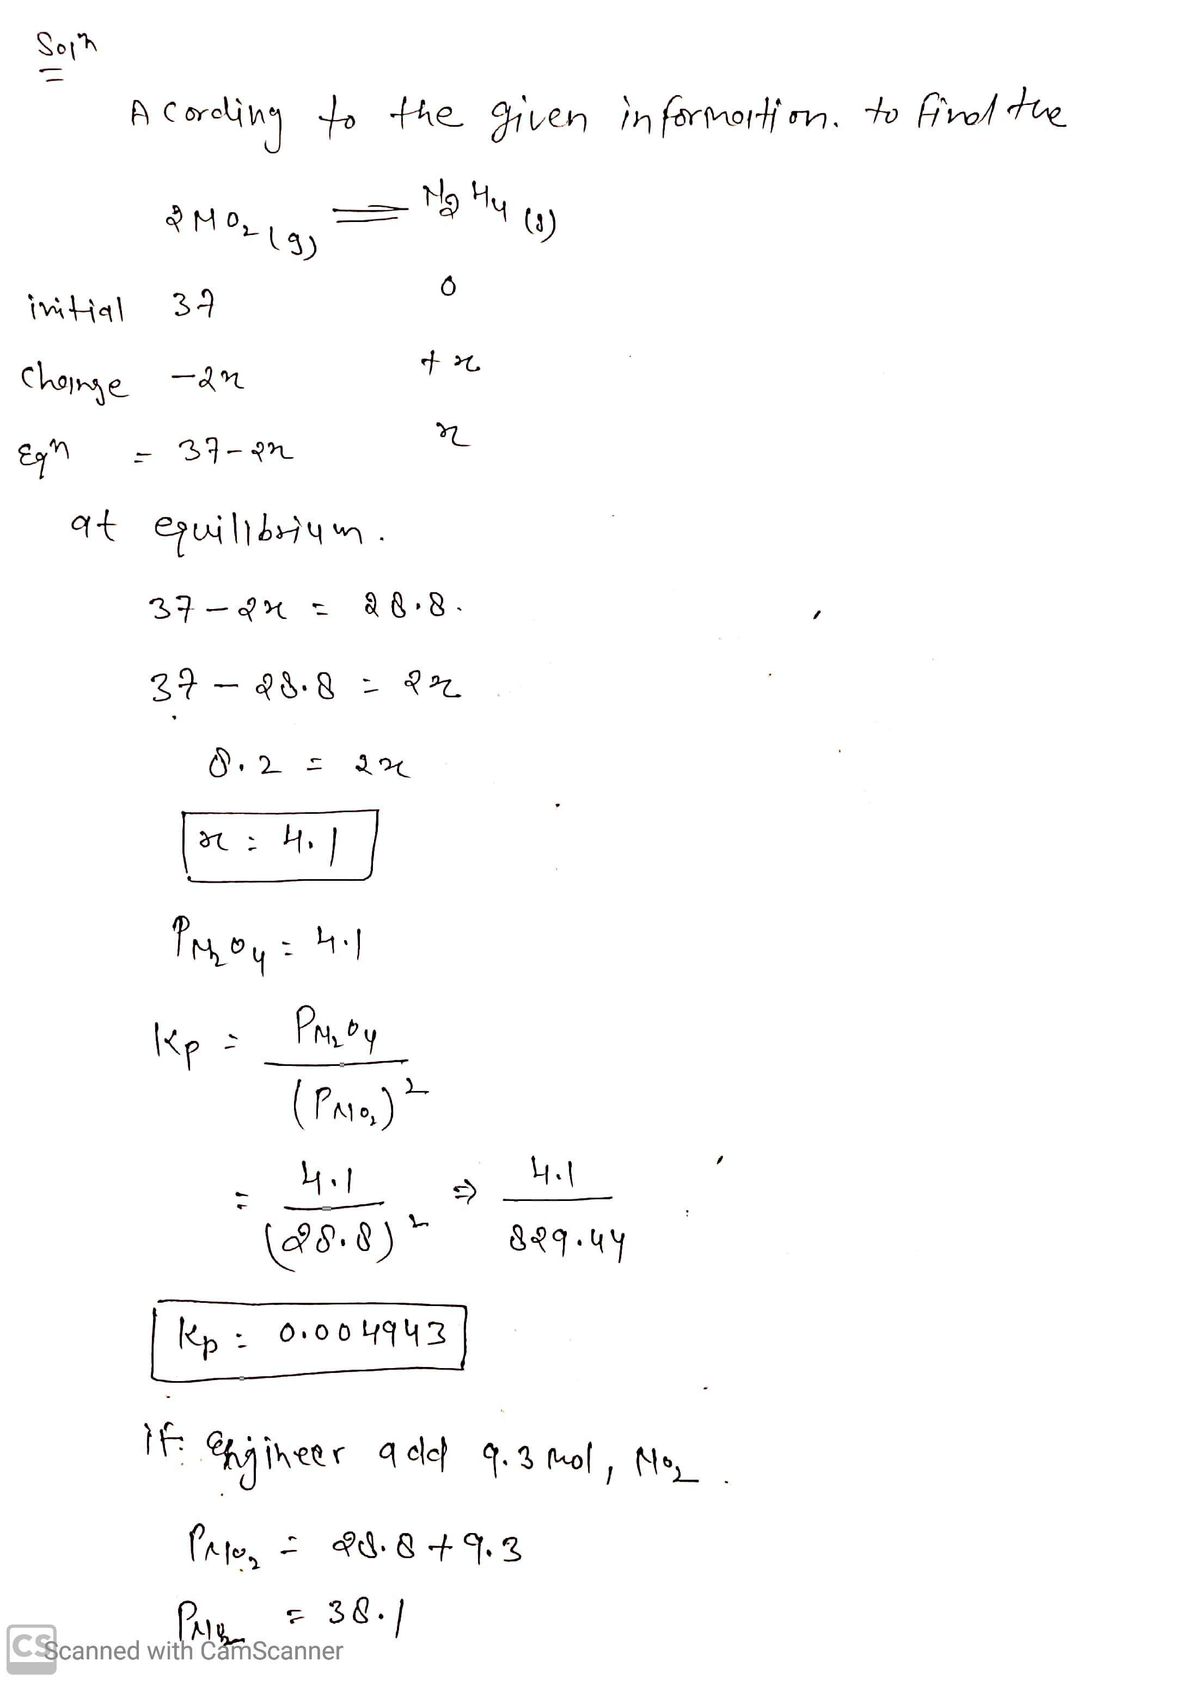 Soln
Acording to the given information. to find the
2NO2(g) ⇌ N2H4(g)
initial 37 0
Change -2x +x
Eqn = 37-2x x
at equilibrium.
37-2x = 28.8.
37 - 28.8 = 2x
8.2 = 2x
x = 4.1
PN2O4 = 4.1
Kp = PN2O4 / (PNO2)^2
= 4.1 / (28.8)^2 ⇒ 4.1 / 829.44
Kp = 0.004943
if engineer add 9.3 mol, NO2.
PNO2 = 28.8 + 9.3
PNO2 = 38.1
CS Scanned with CamScanner